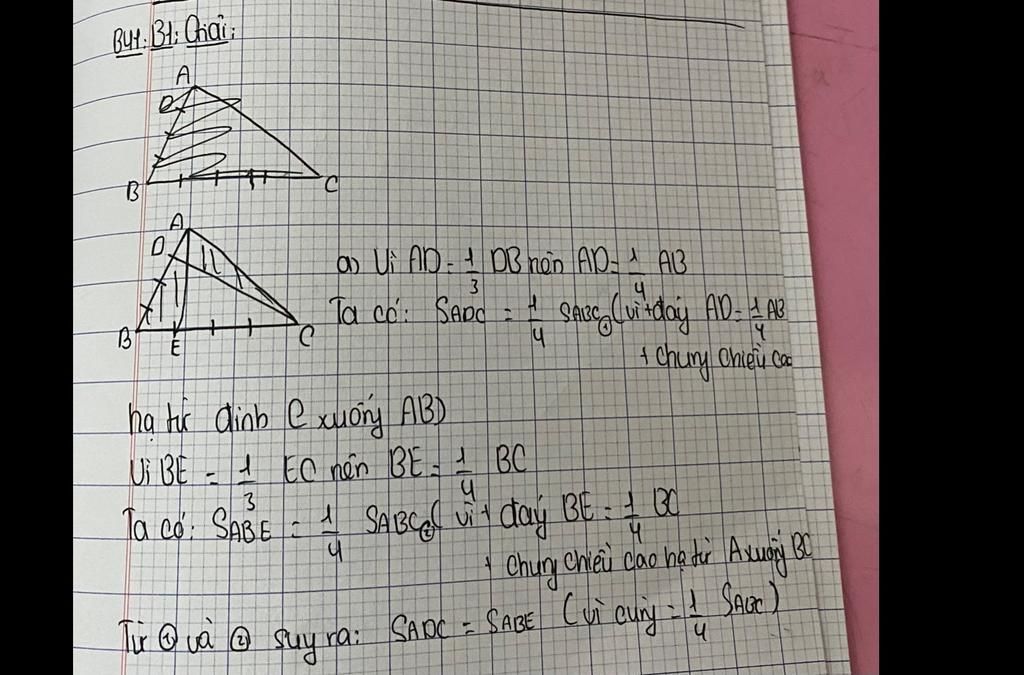 B41: B1: Giải:
A
D
B
C
A
D
B
E
C
a) Vì AD = 1/3 DB nên AD = 1/4 AB
Ta có: SADC = 1/4 SABC ① (vì + đáy AD = 1/4 AB
+ chung chiều cao
hạ từ đỉnh C xuống AB)
Vì BE = 1/3 EC nên BE = 1/4 BC
Ta có: SABE = 1/4 SABC ② ( vì + đáy BE = 1/4 BC
+ chung chiều cao hạ từ A xuống BC
Từ ① và ② suy ra: SADC = SABE (vì cùng = 1/4 SABC)